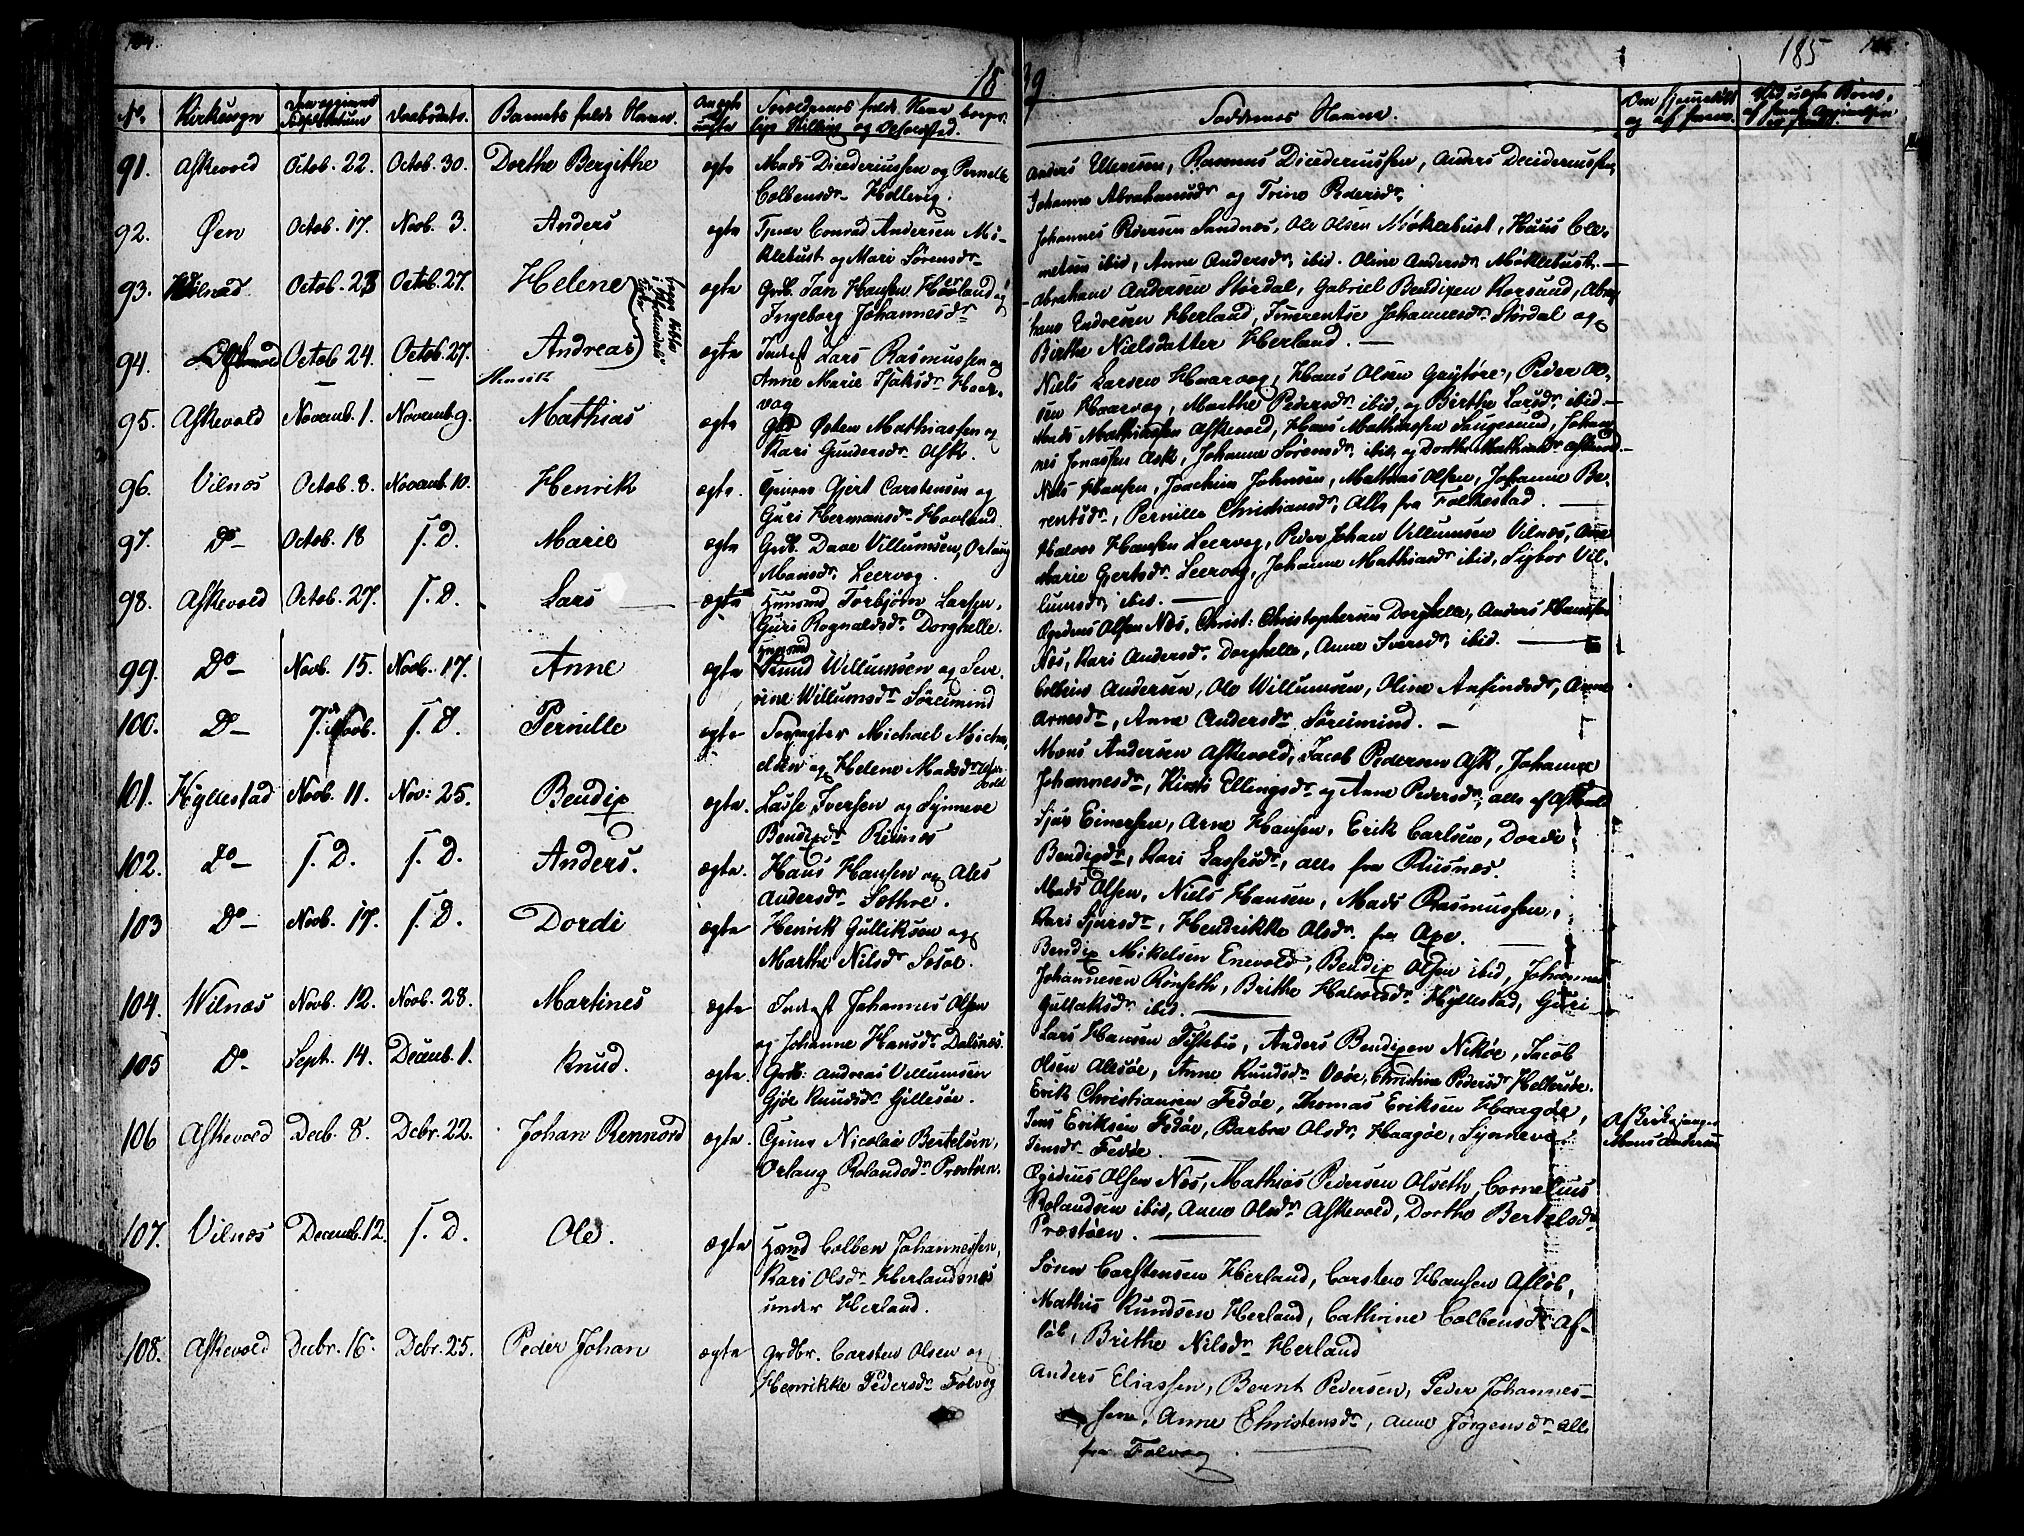 184.
18
39
185
No.
Kirkesogn
Daabsdato.
Barnets fulde Navn.
Faddernes Navne.
91. Askevold Octob. 22. Octob. 30. Dorthe Bergithe ægte Mads Dideriussen og Pernelle
Colbensdr. Hellevig.
Anders Ellevsen, Rasmus Dideriussen, Anders Dideriussen,
Johanne Abrahamsdr og Trine Pedersdr.
92. Øen Octob. 17. Novb. 3. Anders ægte Tjener Conrad Andersen Mi-
klebust og Mari Sørensdr
Johannes Pedersen Sandnes, Ole Olsen Møklebust, Haus Cle-
metsen ibid, Anne Andersdr ibid. Oline Andersdr Møklebust.
93. Vilnæs Octob. 23 Octob. 27. Helene ægte Grdb. Jan Hansen Hovland og
Ingeborg Johannesdr
Abrahame Andersen Stordal, Gabriel Bendixen Korsund, Abra-
ham Endresen Herland, Inerentse Johannesdr Stordal og
Birthe Nielsdatter Herland.
94. Askevold Octob. 24. Octob. 27. Andreas ægte Inderst Lars Rasmussen og
Henrik
Anne Marie Isaksdr Haar-
vog
Niels Larsen Haarvog, Hans Olsen Gaytøre, Peder Ol-
sen Haarvog, Marthe Pedersdr ibid, og Birthe Larsdr ibid.
95. Askevold Novemb. 1. Novemb. 9. Mathias ægte Gbd Østen Mathiassen og
Kari Gundersdr Ask.
Mads Mathiassen Askevold, Hans Mathiassen Laugesund, Johan-
nes Jonassen Ask, Johanne Sørensdr ibid, og Dorthe Mathiasdr Askevold.
96. Vilnæs Octob. 8. Novemb. 10. Henrik ægte. Gjert Carstensen og
Guri Hermansdr Hovland
Niels Hansen, Joachim Johnsen, Mathias Olsen, Johanne Be-
rentsdr, Pernille Christiansdr, Alle fra Folkestad.
97. Do Octob. 18 S. D. Marie ægte Grdb. Dave Villumsen, Orlaug
Monsdr Leervog.
Halvor Hansen Leervog, Peder Johan Villumsen Vilnæs, Ane
Marie Gjertsdr Leervog, Johanne Mathiasdr ibid, Sigbor Vil-
lumsdr ibid.
98. Askevold Octob. 27. S. D. Lars ægte Husmd Torbjørn Larsen,
Guri Rognaldsdr Dorghelle.
Egedius Olsen Nes, Christ: Christophersen Dorghelle, Anders Hansen
Nes, Kari Andersdr Dorghelle, Anne Iversdr ibid.
99. Do Novb. 15. Novb. 17. Anne ægte Husmd
Amund Willumsen og Seve-
rine Willumsdr Søreimind
Colbens Andersen, Ole Willumsen, Oline Anfindsdr, Anne
Arnesdr, Anne Andersdr Søreimind.
100. Do 7. Novb. S. D. Pernille ægte Forpagter Michael Micha-
elsen og Helene Madsdr Askevold
Mons Andersen Askevold, Jacob Pedersen Ask, Johanne
Johannesdr, Kirsti Ellingsdr og Anne Pedersdr, alle af Askevold
101. Hyllestad Novb. 11. Nov: 25. Bendix ægte. Lasse Iversen og Synneve
Bendixdr Risnes
Sjur Einersen, Arne Hansen, Erik Carlsen, Dordi
Bendixdr, Kari Lassesdr, alle fra Risnæs.
102. Do S. D. S. D. Anders. ægte. Hans Hansen og Ales
Andersdr Sæthre.
Mads Olsen, Niels Hansen, Mads Rasmussen,
Kari Sjursdr, Hendrikke Olsdr fra Axe.
103 Do Novb. 17. S. D. Dordi ægte Henrik Gulliksen og
Marthe Nilsdr Sosøl.
Bendix Mikelsen Enevold, Bendix Olsen ibid, Johannes
Johannesen Rønseth, Brithe Halvorsdr Hyllestad, Guri
Gullaksdr ibid.
104. Wilnæs Novb. 12. Novb. 28. Martines ægte Inderst Johannes Olsen
og Johanne Hansdr Dalsnæs.
Lars Hansen Fistebø, Anders Bendixen Nikøe, Jacob
Olsen Alesøe, Anne Knudsdr Oøe, Christine Pedersdr Hellersøe.
105 Do Sept. 14. Decemb. 1. Knud. ægte. Grdb: Andreas Villumsen
Gjøe Knudsdr Gillesøe.
Erik Christiansen Fedøe, Thomas Eriksen Haagøe,
Jens Eriksen Fedøe, Barbra Olsdr Haagøe, Synneve
Jensdr Fedøe.
106 Askevold Decb. 8. Decbr. 22. Johan Rennord ægte. Nicolai Bertelsen,
Orlaug Rolandsdr Præstøen.
Egedius Olsen Nes, Mathias Pedersen Olseth, Cornelius
Rolandsen ibid, Anne Olsdr Askevold, Dorthe Bertelsdr
Præstøen.
Af Kirkesanger
Mons Andersen
107. Vilnæs Decemb. 12. S. D. Ole. ægte Hsmd Colben Johannessen,
Kari Olsdr Herlandsnæs
under Herland.
Søren Carstensen Herland, Carsten Hansen Afløb,
Mathis Knudsen Herland, Cathrine Colbensdr Af-
løb, Brithe Nilsdr Herland
108. Askevold Decbr. 16. Decbr. 25. Peder Johan ægte Grdbr. Carsten Olsen og
Henrikke Pedersdr Folvog
Anders Eliassen, Bernt Pedersen, Peder Johannes-
sen, Anne Christensdr, Anne Jørgensdr alle
fra Folvog